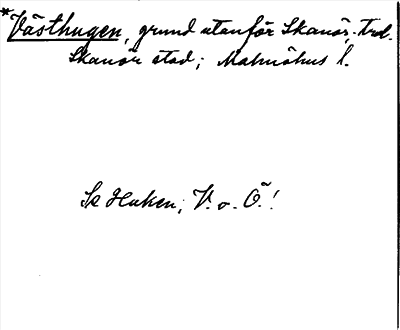 *Västhugen, grund utanför Skanör, Trel.
Skanör stad; Malmöhus l.
Se Huken, V. o. Ö.!